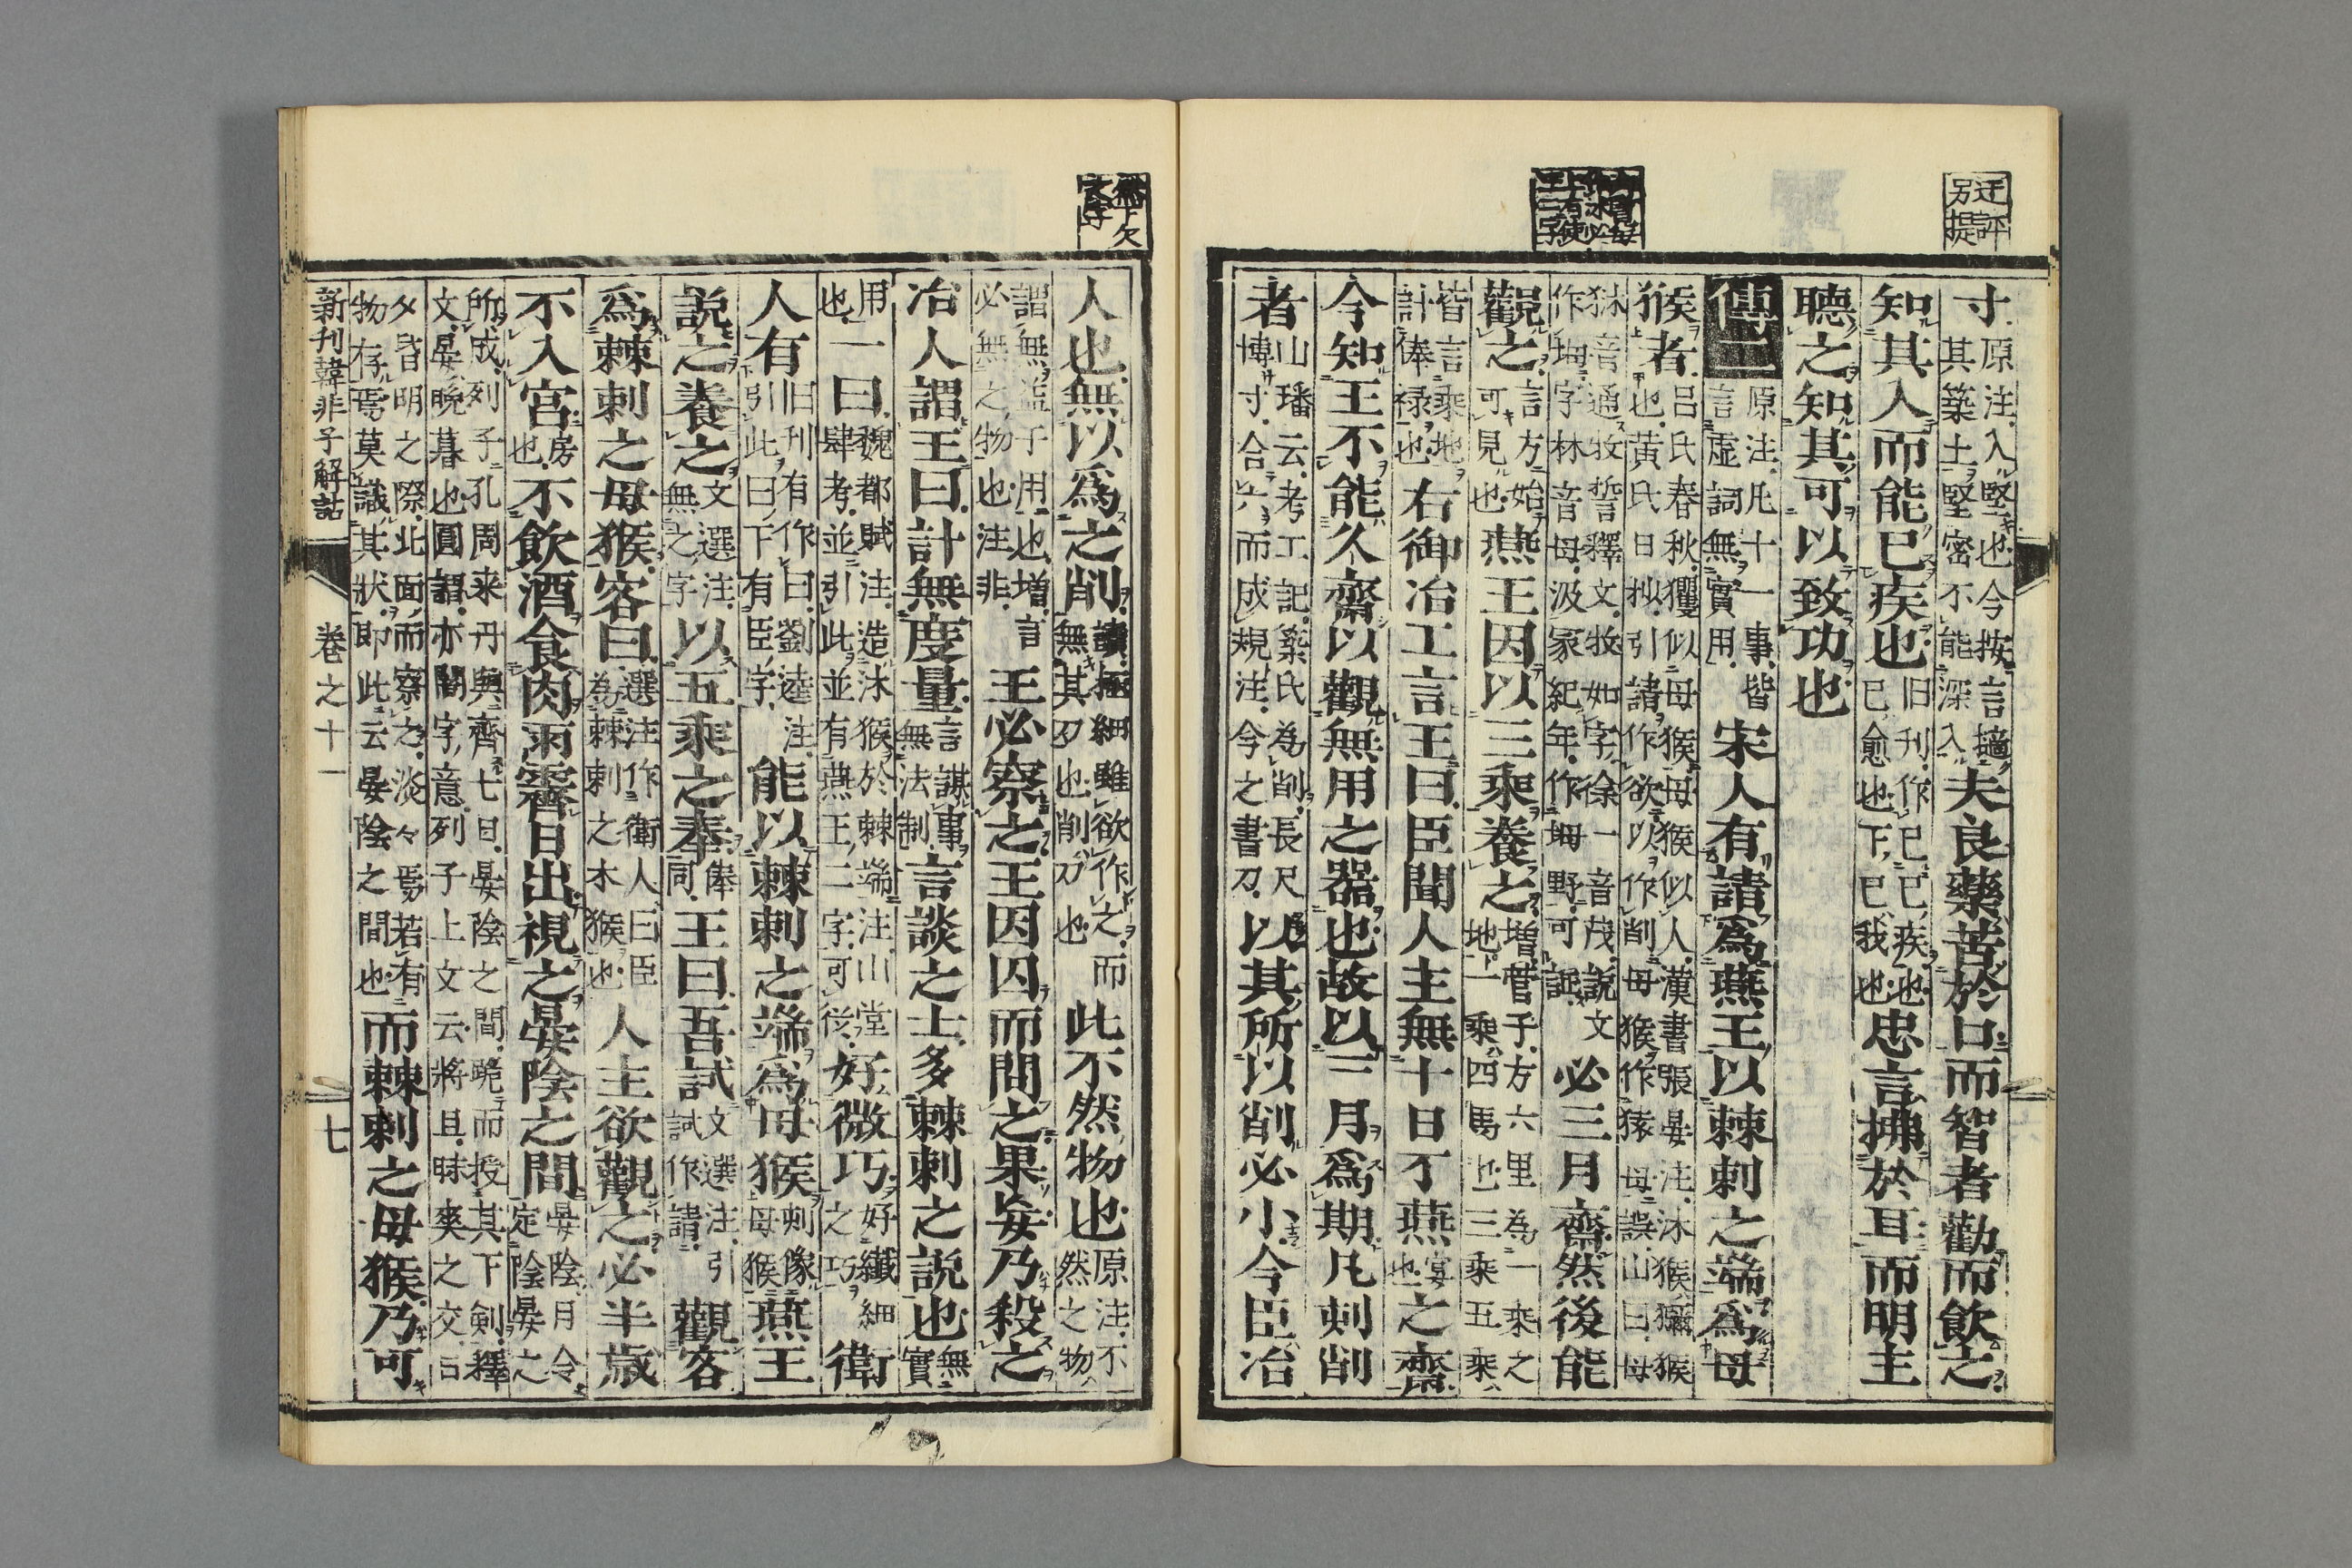 迂評
另提
寸原注入堅也今按言擿
其築土堅密不能深入夫良藥苦於口而智者勸而飮之
知其入而能已疾也旧刋作已已疾也
已愈也下已我也忠言拂於耳而明主
聽之知其可以致功也
傳二原注凡十一事皆
言虛詞無實用宋人有請爲燕王以棘刺之端爲母
猴者呂氏春秋玃似母猴母猴似人漢書張晏注沐猴獼猴
也黄氏日抄引請作欲以作削母猴作猿母誤山曰母
狇音通牧誓釋文牧如字徐一音茂說文
作坶字林音母汲冢紀年作坶野可証必三月齋然後能
觀之言方始
可見也燕王因以三乘養之増管子方六里為一乘之
地上乘四馬也三乘五乘
皆言乘地
計俸禄也右御冶工言王曰臣聞人主無十日不燕宴
也之齋
今知王不能久齋以觀無用之器也故以三月爲期凡刻削
者山璠云考工記築氏為削長尺
博寸合六而成規注今之書刀以其所以削必小今臣冶
人也無以爲之削讀極細雖欲作之而
無其刃也削刀也此不然物也原注不
然之物
謂無益于用也増言
必無之物也注非王必察之王因囚而問之果妄乃殺之
冶人謂王曰計無度量言謀事
無法制言談之士多棘刺之說也無
實
用
也一曰魏都賦注造沐猴於棘端注山堂
肆考並引此並有燕王二字可從好微巧好纖細
之巧衛
人有旧刋有作曰劉逵注
引此曰下有臣字能以棘刺之端爲母猴刺像
母猴燕王
說之養之文選注
無之字以五乘之奉俸
同王曰吾試文選注引
試作請觀客
爲棘刺之母猴客曰選注作衛人曰臣
為棘刺之木猴也人主欲觀之必半歲
不入宮房
也不飮酒食肉雨霽日出視之晏陰之間晏陰月令
定陰晏之
所成列子孔周来丹與齊七日晏陰之間跪而授其下剣釋
文晏晩暮也圓謂亦闇字意列子上文云將旦昧爽之交日
夕昏明之際北面而察之淡々焉若有
物存焉莫識其状即此云晏陰之間也而棘刺之母猴乃可
新刋韓非子解詁
卷之十一
七